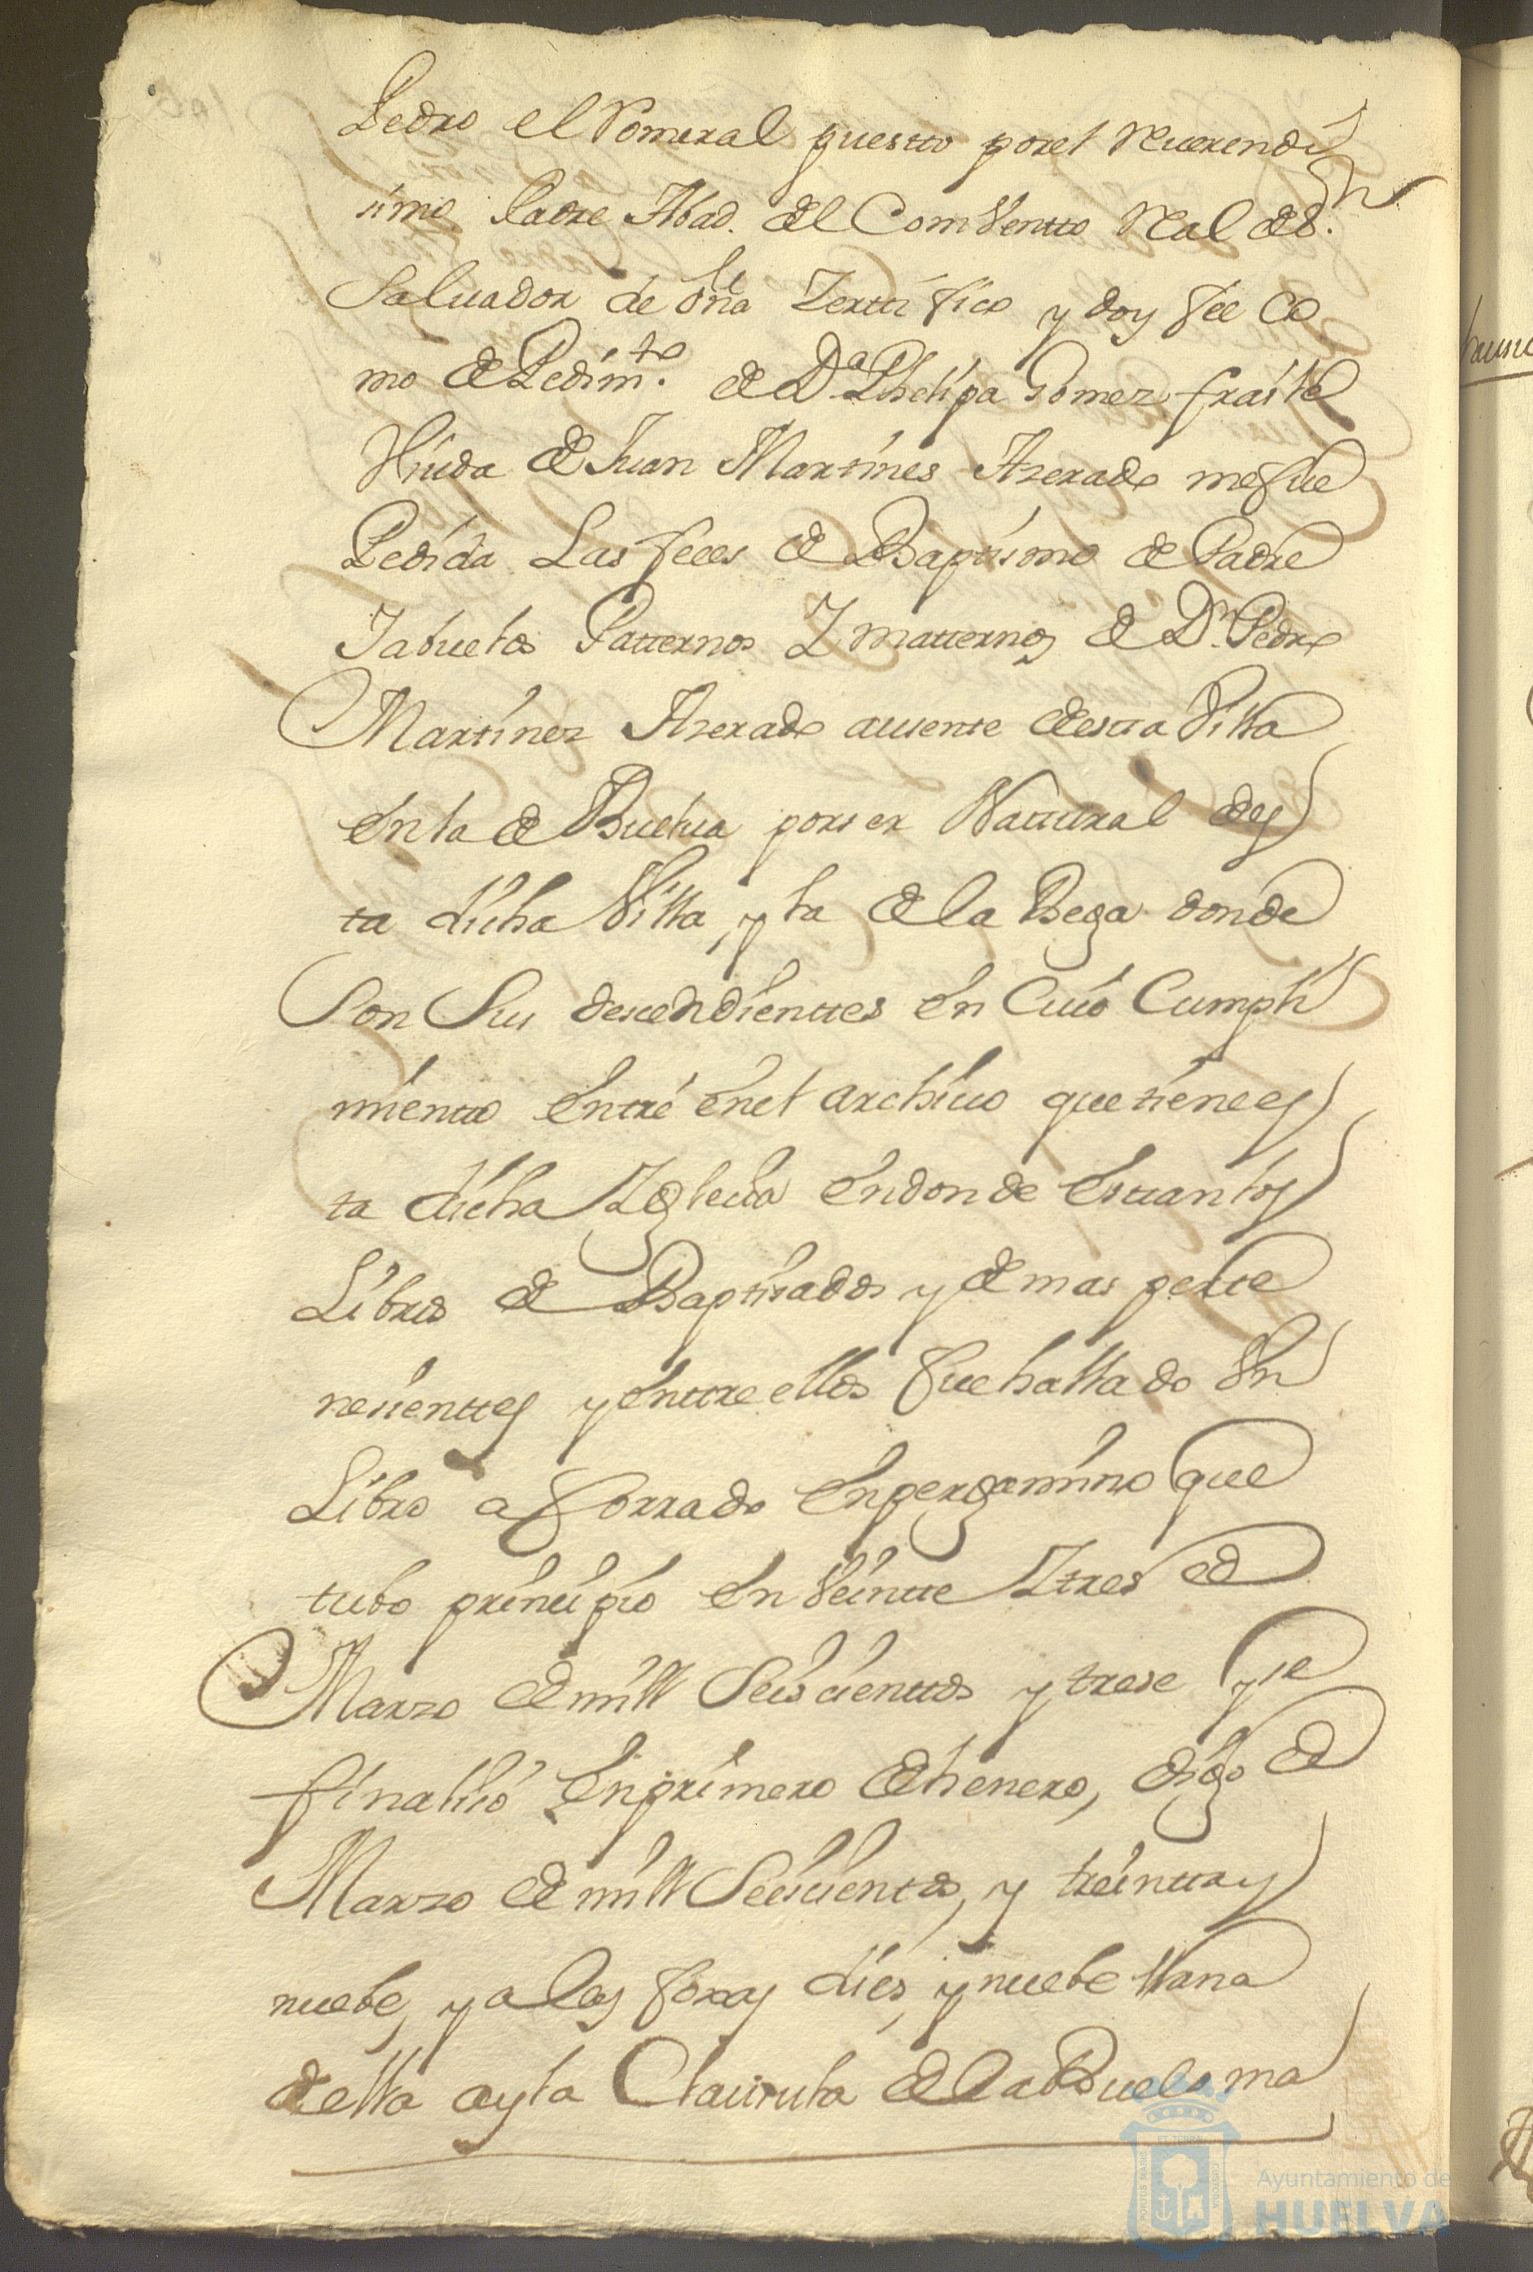 Pedro el Pomeral puestto porel Reuerendi
simo Padre Abad. del Combentto Real de S.n
Saluador de Oña Zerttifico y doy fee Co
mo de Pedim.to de D.a Phelipa Gomez fraile
Viuda de Juan Martines Azerado me fue
Pedida Las fees de Baptismo de Padre
Yabuelos Patternos Y matternos de D.n Pedro
Martinez Azerado ausente destta Villa
en la de Buelua por ser Nattural des
ta dicha Villa, y la de la Bega donde
Son Sus desendienttes en Cuio Cumpli
mientto entré enel archiuo que tiene es
ta dicha Yglecia endonde esttan los
Libros de Baptisados y demas perte
nesienttes y enttre ellos fue hallado Vn
Libro aforrado enpergamino que
tubo prinsipio en Veintte Ytres de
Marzo de mill Seiscienttos y trese y se
finalisó enprimero de henero, digo de
Marzo de mill Seiscientos, y treintta y
nuebe, y a las foxas dies, y nuebe llana
della ay la Clausula de la abuelo ma
Ayuntamiento de
HUELVA